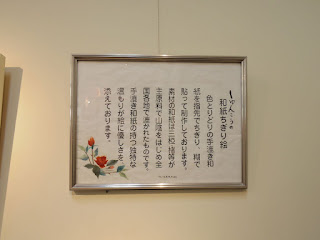 和紙ちぎり絵
色とりどりの手漉き和
紙を指先でちぎり、糊で
貼って制作しております。
素材の和紙は三椏・楮等が
主原料で山陰をはじめ全
国各地で漉かれたものです。
手漉き和紙の持つ独特な
温もりが絵に優しさを、
添えております。